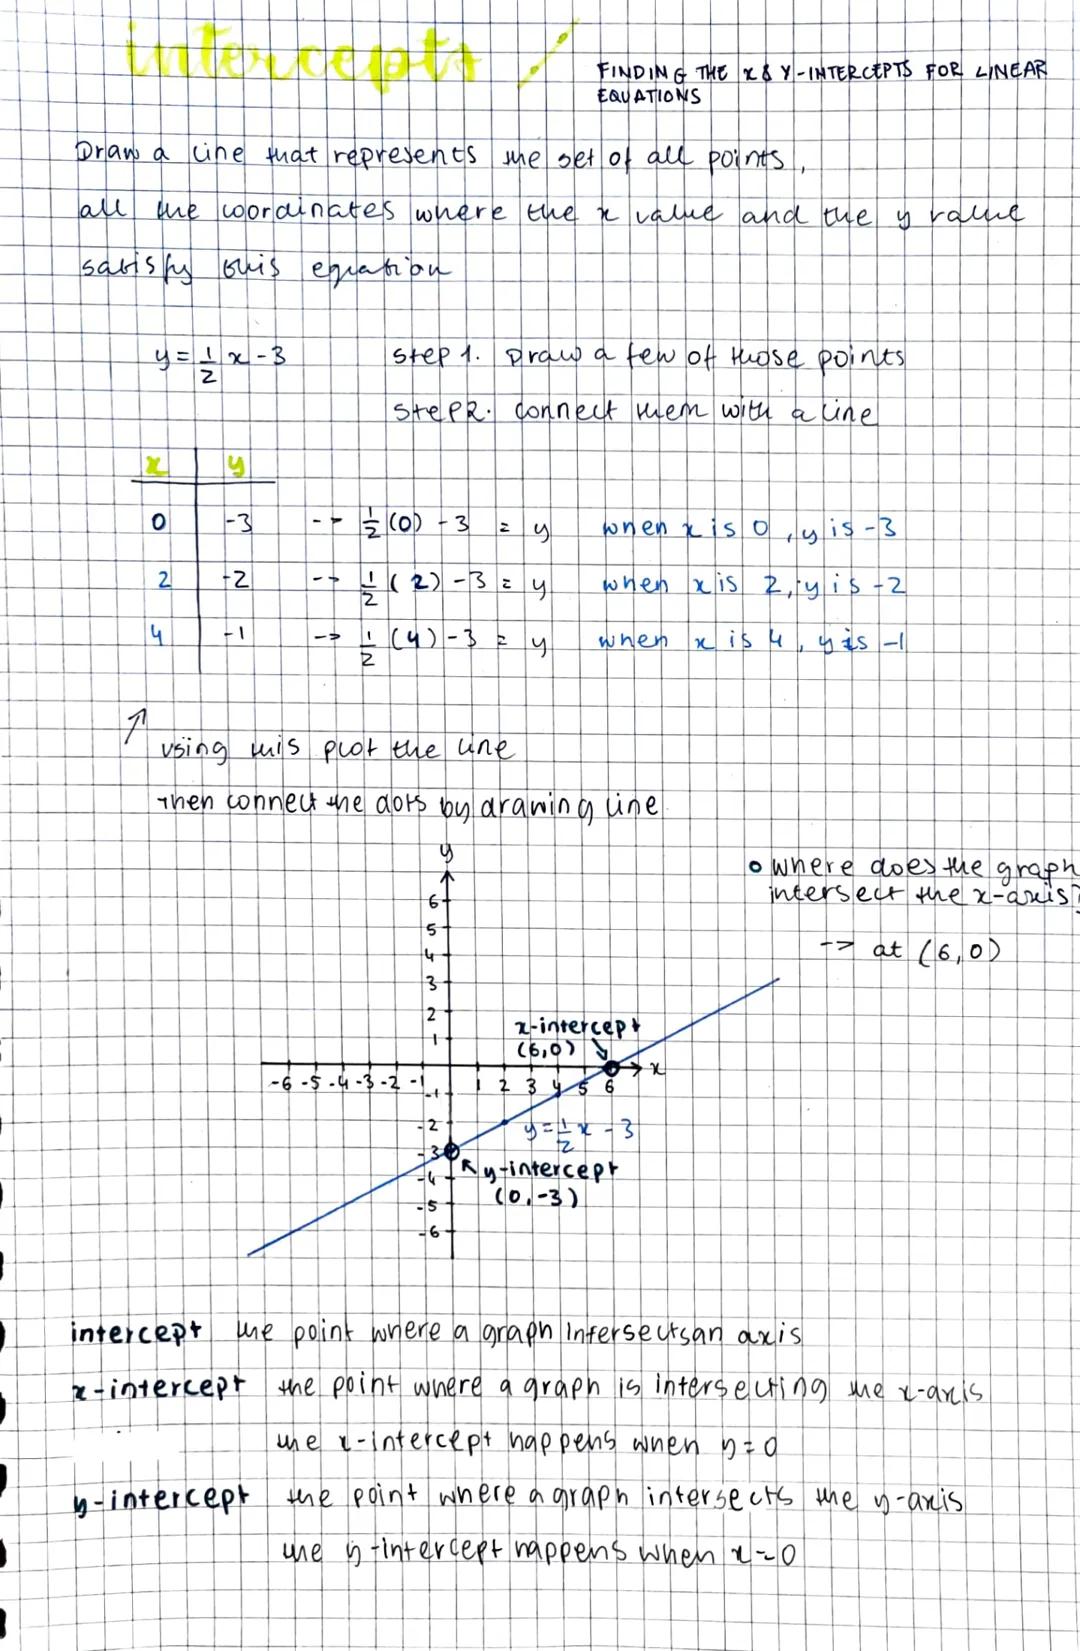 intercepts /
FINDING THE x & y-INTERCEPTS FOR LINEAR
EQUATIONS
Draw a line that represents the set of all points,
all the coordinates where the x value and the y value
satisfy this equation
y = 1/2 x - 3
step 1. Draw a few of those points
step 2. connect them with a line
x y
0 -3 --> 1/2 (0) - 3 = y when x is 0, y is -3
2 -2 --> 1/2 (2) - 3 = y when x is 2, y is -2
4 -1 --> 1/2 (4) - 3 = y when x is 4, y is -1
↑ using this plot the line
then connect the dots by drawing line
o where does the graph
intersect the x-axis?
-> at (6,0)
y
6
5
4
3
2
1
x-intercept
(6,0)
x
-6 -5 -4 -3 -2 -1 1 2 3 4 5 6
-1
-2
-3
-4
-5
-6
y = 1/2 x - 3
y-intercept
(0,-3)
intercept the point where a graph intersects an axis
x-intercept the point where a graph is intersecting the x-axis
the x-intercept happens when y = 0
y-intercept the point where a graph intersects the y-axis
the y-intercept happens when x = 0